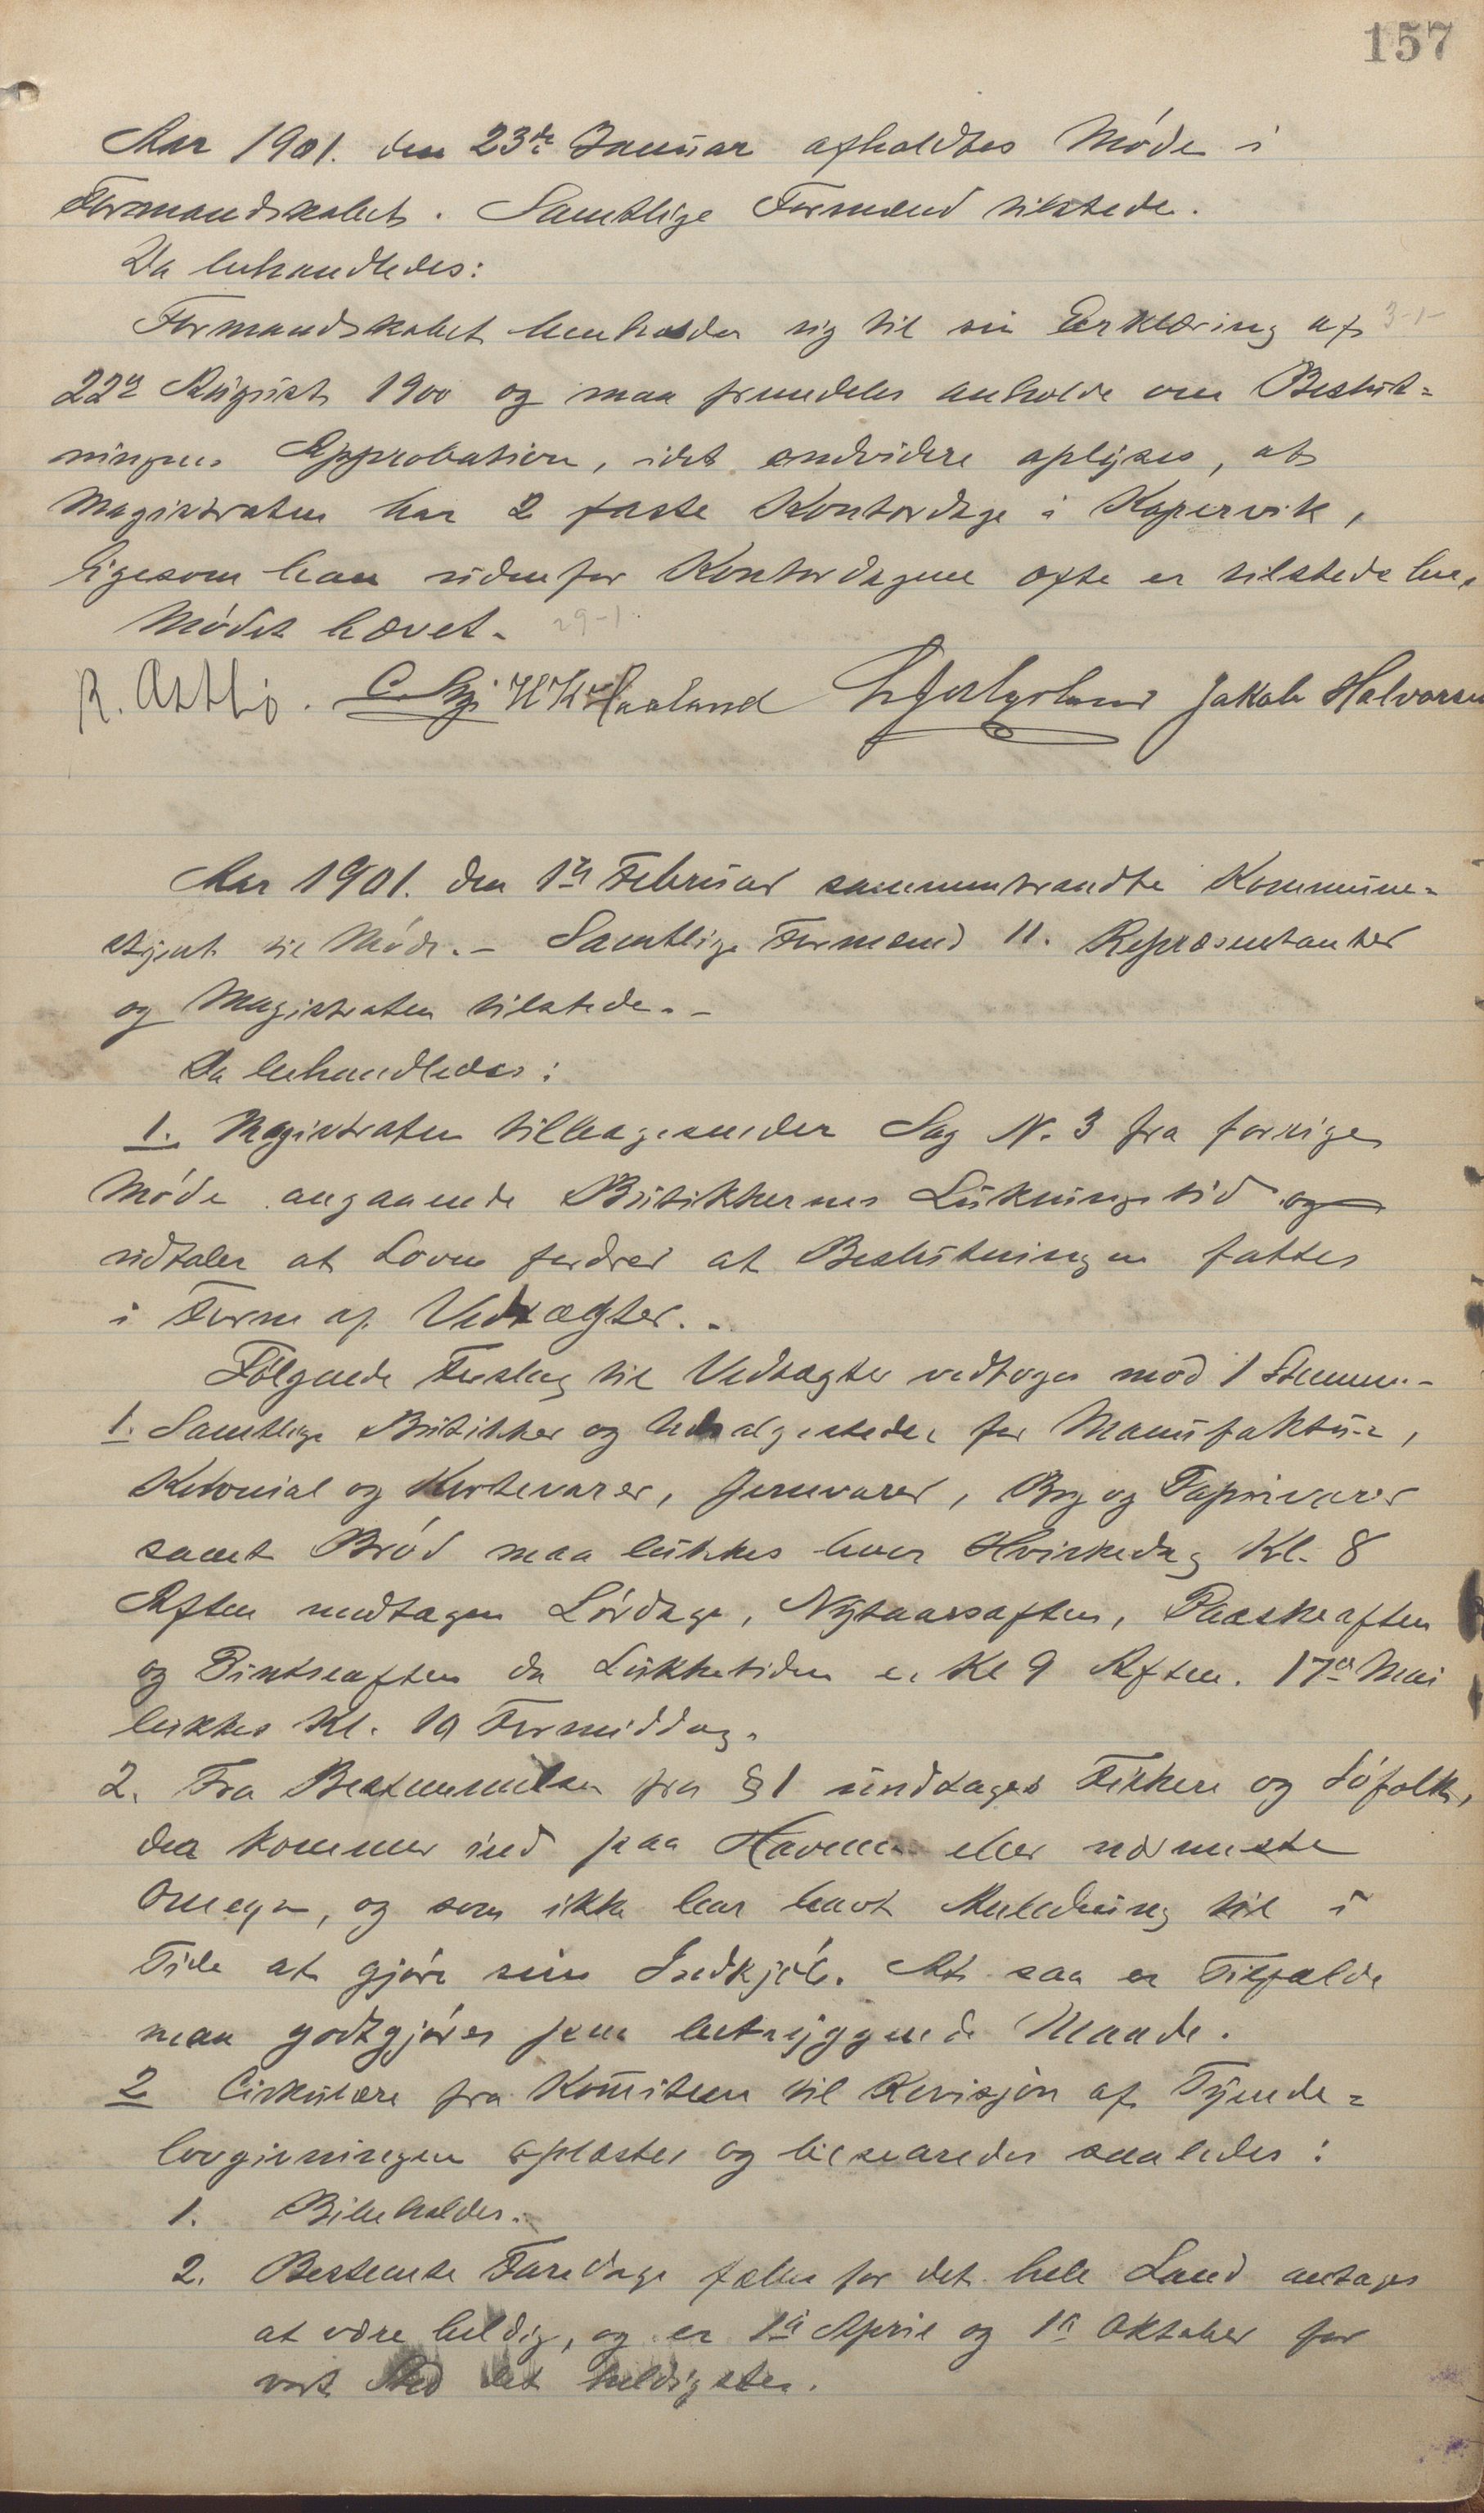 157
Aar 1901. den 23de Januar afholdtes Møde i
Formandskabet. Samtlige Formænd tilstede.
Da behandledes:
Formandskabet henholder sig til sin Erklæring af 3-1-
22de August 1900 og maa fremdeles anholde om Beslut-
ningens Approbation, idet endvidere oplyses, at
Magistraten har 2 faste Kontordage i Kopervik,
ligesom han udenfor Kontordagene ofte er tilstede her.
Mødet hævet. 29-1.
R. Asbo. H Kr Haaland Jakob Halvorsen
Aar 1901. den 1te Februar sammentraadte Kommune-
styret til Møde. - Samtlige Formænd 11. Repræsentanter
og Magistraten tilstede. -
Da behandledes:
1. Magistraten tilbagesender Sag N. 3 fra forrige
Møde angaaende Butikkernes Lukningstid og
udtaler at Loven fordrer at Beslutningen fattes
i Form af Vedtægter. -
Følgende Forslag til Vedtægter vedtoges mod 1 Stemme. -
1. Samtlige Butikker og Udsalgssteder for Manufaktur,
Kolonial og Kortevarer, Jernvarer, Bog og Papirvarer
samt Brød maa lukkes hver Hvirkedag Kl. 8
Aften undtagen Lørdage, Nytaarsaften, Paaskeaften
og Pintseaften da Lukketiden er Kl 9 Aften. 17de Mai
lukkes Kl. 10 Formiddag.
2. Fra Bestemmelsen fra § 1 undtages Fiskere og Søfolk,
der kommer ind paa Havnen eller nærmeste
Omegn, og som ikke har havt Anledning til i
Tide at gjøre sine Indkjøb. At saa er Tilfælde
maa godtgjøres paa betryggende Maade.
2 Cirkulære fra Komiteen til Revisjon af Tyende-
lovgivningen oplæstes og besvaredes saaledes:
1. Bibeholdes.
2. Bestemte Faredage fælles for det hele Land antages
at være heldig, og er 1te April og 1te Oktober for
vort Sted det heldigste.